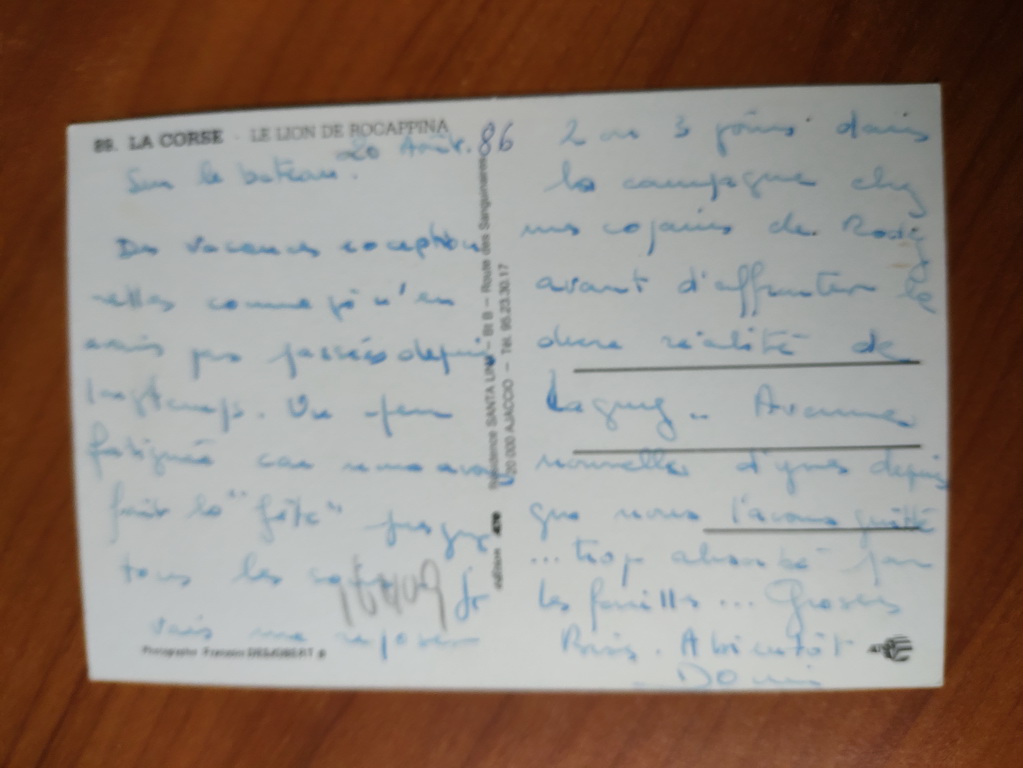 89. LA CORSE - LE LION DE ROCAPPINA
20 Août. 86
Sur le bateau.
Des vacances exception
nelles comme je n'en
avais pas passées depuis
longtemps. Un peu
fatiguée car nous avons
fait la "fête" presque
tous les
Je
vais me reposer
2 ou 3 jours dans
la campagne chez
mes copains de
avant d'affronter la
dure réalité de
Aucunes
nouvelles d'
depuis
que nous l'avons quitté
... trop absorbé par
les fouilles... Grosses
Bises. A bientôt
Domi
édition
Résidence SANTA LINA - Bt B - Route des Sanguinaires
20 000 AJACCIO - Tél. 95.23.30.17
Photographe Francois DESJOBERT